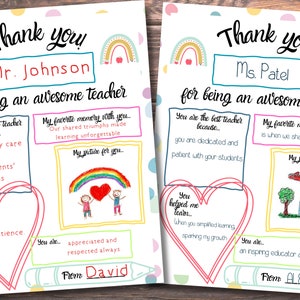 Thank you!
Mr. Johnson
being an awesome teacher
teacher
My favorite memory with you...
Our shared triumphs made
learning unforgettable
care
My picture for you...
You are...
appreciated and
respected always
From David
Thank you
Ms. Patel
for being an awesome
You are the best teacher
because...
you are dedicated and
patient with your students
My favorite
is when we
You
helped me
learn...
When you simplified learning,
sparking my growth.
You are...
an inspiring educator
From